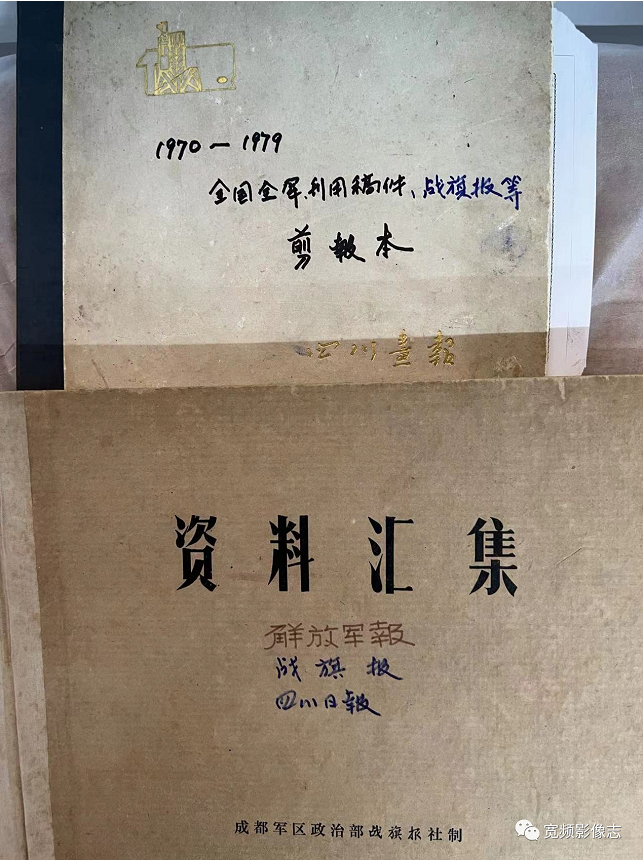 1970－1979
全国全军利用稿件、战旗报等
剪報本
四川畫報
资料汇集
解放军報
战旗报
四川日報
成都军区政治部战旗报社制
宽频影像志